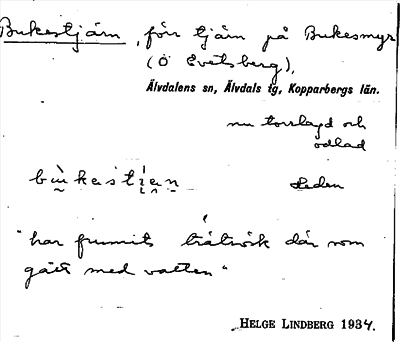 Bukestjärn, förr tjärn på Bukesmyr
(Ö Evetsberg),
Älvdalens sn, Älvdals tg, Kopparbergs län.
nu torrlagd och
odlad
Heden
"har funnits där som
gått med vatten"
HELGE LINDBERG 1934.